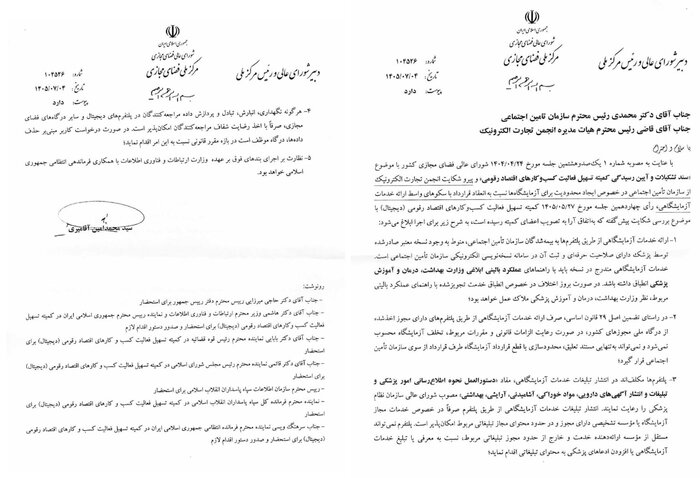 جمهوری اسلامی ایران
شورای عالی فضای مجازی
مرکز ملی فضای مجازی
دبیر شورای عالی و رئیس مرکز ملی
شماره: ۱۰۲۵۲۶
تاریخ: ۱۴۰۵/۰۷/۰۴
پیوست: دارد
جناب آقای دکتر محمدی رئیس محترم سازمان تامین اجتماعی
جناب آقای قاضی رئیس محترم هیات مدیره انجمن تجارت الکترونیک
با سلام و احترام
با عنایت به مصوبه شماره ۱ یک‌صدوهشتمین جلسه مورخ ۱۴۰۴/۰۴/۲۴ شورای عالی فضای مجازی کشور با موضوع
«سند تشکیلات و آیین رسیدگی کمیته تسهیل فعالیت کسب‌وکارهای اقتصاد رقومی» و پیرو شکایت انجمن تجارت الکترونیک
از سازمان تأمین اجتماعی در خصوص ایجاد محدودیت برای آزمایشگاه‌ها نسبت به انعقاد قرارداد با سکوهای واسط ارائه خدمات
آزمایشگاهی، رأی چهاردهمین جلسه مورخ ۱۴۰۵/۰۵/۲۷ کمیته تسهیل فعالیت کسب‌وکارهای اقتصاد رقومی (دیجیتال) با
موضوع بررسی شکایت پیش‌گفته که به‌اتفاق آرا به تصویب اعضای کمیته رسیده است، به شرح زیر برای اجرا ابلاغ می‌شود:
۱- ارائه خدمات آزمایشگاهی از طریق پلتفرم‌ها به بیمه‌شدگان سازمان تأمین اجتماعی، منوط به وجود نسخه معتبر صادرشده
توسط پزشک دارای صلاحیت حرفه‌ای و ثبت آن در سامانه نسخه‌نویسی الکترونیکی سازمان تأمین اجتماعی است.
خدمات آزمایشگاهی مندرج در نسخه باید با راهنماهای عملکرد بالینی ابلاغی وزارت بهداشت، درمان و آموزش
پزشکی انطباق داشته باشد. در صورت بروز اختلاف در خصوص انطباق خدمت تجویزشده با راهنمای عملکرد بالینی
مربوط، نظر وزارت بهداشت، درمان و آموزش پزشکی ملاک عمل خواهد بود.
۲- در راستای تضمین اصل ۲۹ قانون اساسی، صرف ارائه خدمات آزمایشگاهی از طریق پلتفرم‌های دارای مجوز اخذشده،
از درگاه ملی مجوزهای کشور، در صورت رعایت الزامات قانونی و مقررات مربوط، تخلف آزمایشگاه محسوب
نمی‌شود و نمی‌تواند به‌تنهایی مستند تعلیق، محدودسازی یا قطع قرارداد آزمایشگاه طرف قرارداد از سوی سازمان تأمین
اجتماعی قرار گیرد؛
۳- پلتفرم‌ها مکلف‌اند در انتشار تبلیغات خدمات آزمایشگاهی، مفاد «دستورالعمل نحوه اطلاع‌رسانی امور پزشکی و
تبلیغات و انتشار آگهی‌های دارویی، مواد خوراکی، آشامیدنی، آرایشی، بهداشتی» مصوب شورای عالی سازمان نظام
پزشکی را رعایت نمایند. انتشار تبلیغات خدمات آزمایشگاهی از طریق پلتفرم صرفاً در خصوص خدمات مجاز
آزمایشگاه یا مؤسسه تشخیصی دارای مجوز و در حدود محتوای مجاز تبلیغاتی مربوط امکان‌پذیر است. پلتفرم نمی‌تواند
مستقل از مؤسسه ارائه‌دهنده خدمت و خارج از حدود مجوز تبلیغاتی مربوط، نسبت به معرفی یا تبلیغ خدمات
آزمایشگاهی یا افزودن ادعاهای پزشکی به محتوای تبلیغاتی اقدام نماید؛
جمهوری اسلامی ایران
شورای عالی فضای مجازی
مرکز ملی فضای مجازی
دبیر شورای عالی و رئیس مرکز ملی
شماره: ۱۰۲۵۲۶
تاریخ: ۱۴۰۵/۰۷/۰۴
پیوست: دارد
۴- هرگونه نگهداری، انبارش، تبادل و پردازش داده مراجعه‌کنندگان در پلتفرم‌های دیجیتال و سایر درگاه‌های فضای
مجازی، صرفاً با اخذ رضایت شفاف مراجعه‌کنندگان امکان‌پذیر است. در صورت درخواست کاربر مبنی‌بر حذف
داده‌ها، درگاه موظف است در بازه مقرر قانونی نسبت به این امر اقدام نماید؛
۵- نظارت بر اجرای بندهای فوق بر عهده وزارت ارتباطات و فناوری اطلاعات با همکاری فرماندهی انتظامی جمهوری
اسلامی خواهد بود.
سید محمدامین آقامیری
رونوشت:
- جناب آقای دکتر حاجی میرزایی رییس محترم دفتر رییس جمهور برای استحضار
- جناب آقای دکتر هاشمی وزیر محترم ارتباطات و فناوری اطلاعات و نماینده محترم جمهوری اسلامی ایران در کمیته تسهیل
فعالیت کسب و کارهای اقتصاد رقومی (دیجیتال) برای استحضار و صدور دستور اقدام لازم
- جناب آقای دکتر بابایی نماینده محترم رئیس قوه قضائیه در کمیته تسهیل فعالیت کسب و کارهای اقتصاد رقومی (دیجیتال) برای
استحضار
- جناب آقای دکتر قائمی نماینده محترم رئیس مجلس شورای اسلامی در کمیته تسهیل فعالیت کسب و کارهای اقتصاد رقومی (دیجیتال)
برای استحضار
- رییس محترم سازمان اطلاعات سپاه پاسداران انقلاب اسلامی برای استحضار
- نماینده محترم فرمانده کل سپاه پاسداران انقلاب اسلامی در کمیته تسهیل فعالیت کسب و کارهای اقتصاد رقومی (دیجیتال) برای
استحضار
- جناب سرهنگ ویسی نماینده محترم فرمانده انتظامی جمهوری اسلامی ایران در کمیته تسهیل فعالیت کسب و کارهای اقتصاد رقومی
(دیجیتال) برای استحضار و صدور دستور اقدام لازم